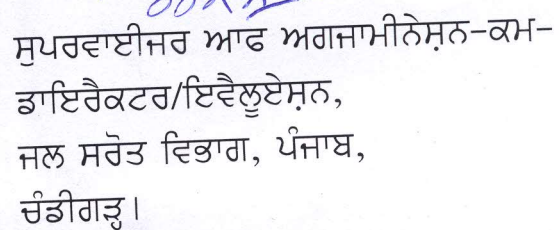 ਸੁਪਰਵਾਈਜਰ ਆਫ ਅਗਜਾਮੀਨੇਸ਼ਨ-ਕਮ-
ਡਾਇਰੈਕਟਰ/ਇਵੈਲੂਏਸ਼ਨ,
ਜਲ ਸਰੋਤ ਵਿਭਾਗ, ਪੰਜਾਬ,
ਚੰਡੀਗੜ੍ਹ।